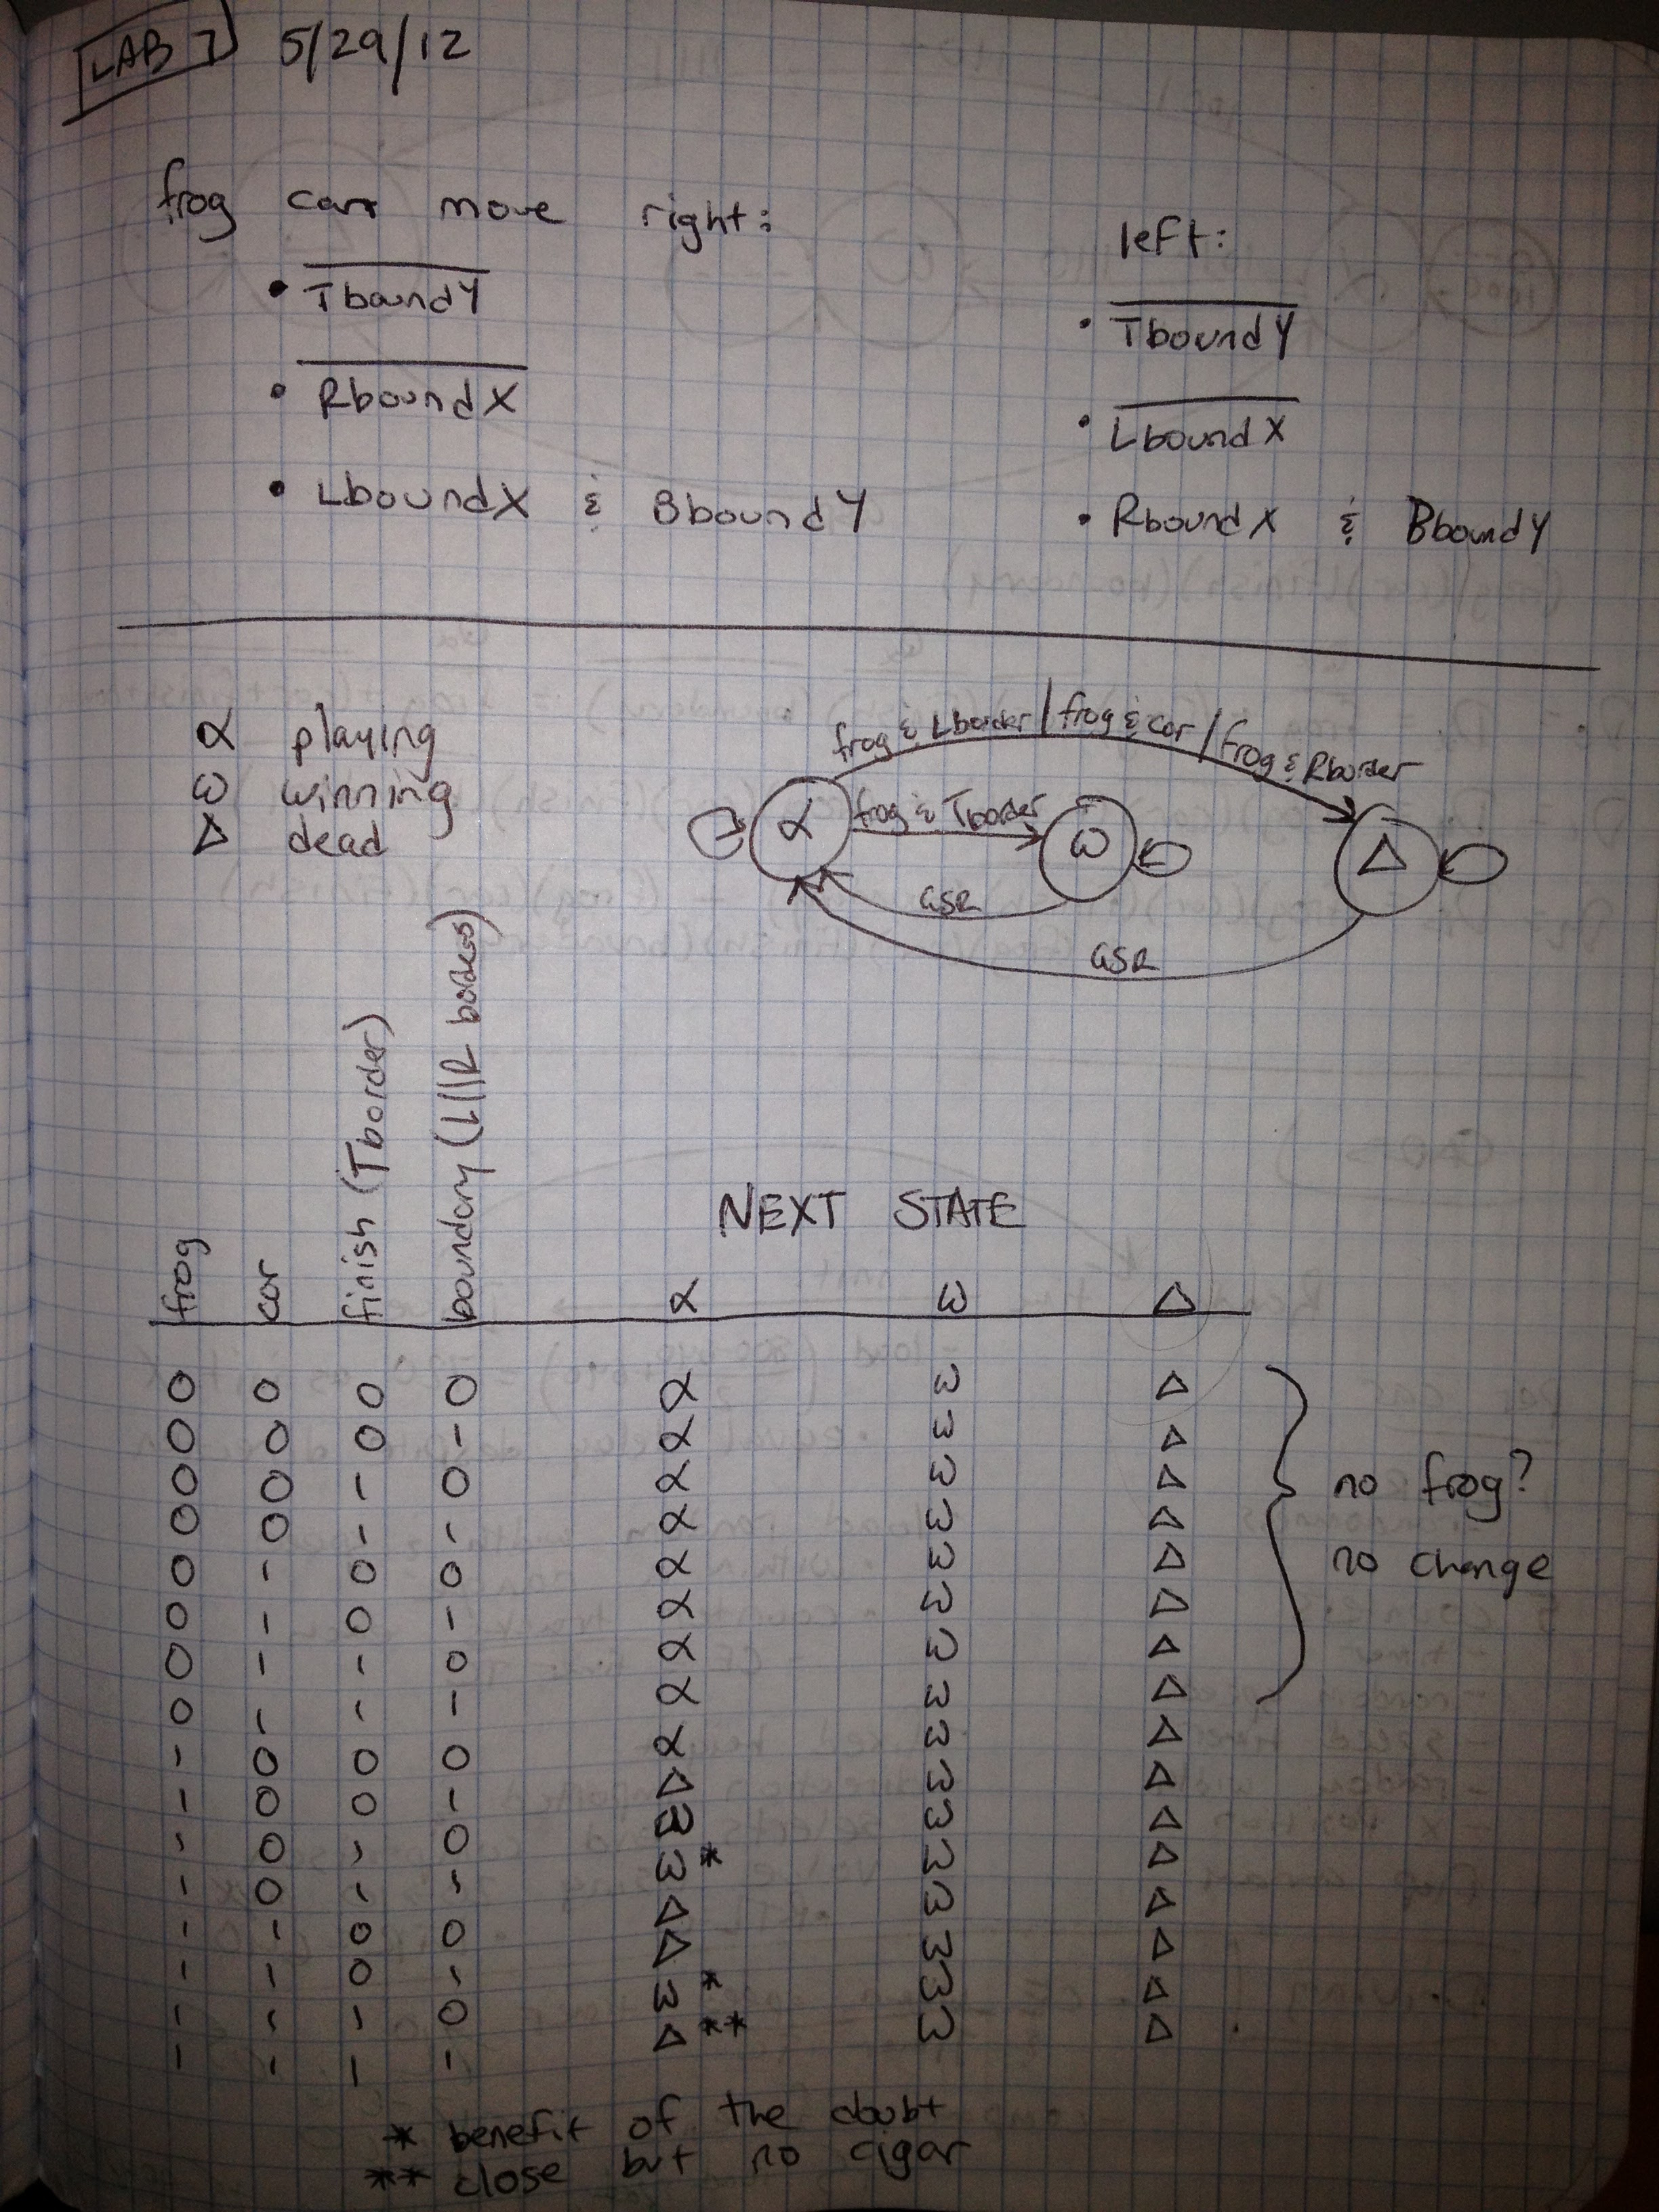 LAB 7 5/29/12
frog can move right:
left:
• TboundY
• TboundY
• RboundX
• LboundX
• LboundX & BboundY
• RboundX & BboundY
α playing
ω winning
Δ dead
frog & Lborder / frog & car / frog & Rborder
α
frog & Tborder
ω
Δ
GSR
GSR
NEXT STATE
frog car finish (Tborder) boundary (L||R borders) α ω Δ
0 0 0 0 α ω Δ
0 0 0 1 α ω Δ
0 0 1 0 α ω Δ
0 0 1 1 α ω Δ
0 1 0 0 α ω Δ
0 1 0 1 α ω Δ
0 1 1 0 α ω Δ
0 1 1 1 α ω Δ
no frog?
no change
1 0 0 0 α ω Δ
1 0 0 1 Δ ω Δ
1 0 1 0 ω ω Δ
1 0 1 1 ω * ω Δ
1 1 0 0 Δ ω Δ
1 1 0 1 Δ ω Δ
1 1 1 0 ω * ω Δ
1 1 1 1 Δ ** ω Δ
* benefit of the doubt
** close but no cigar